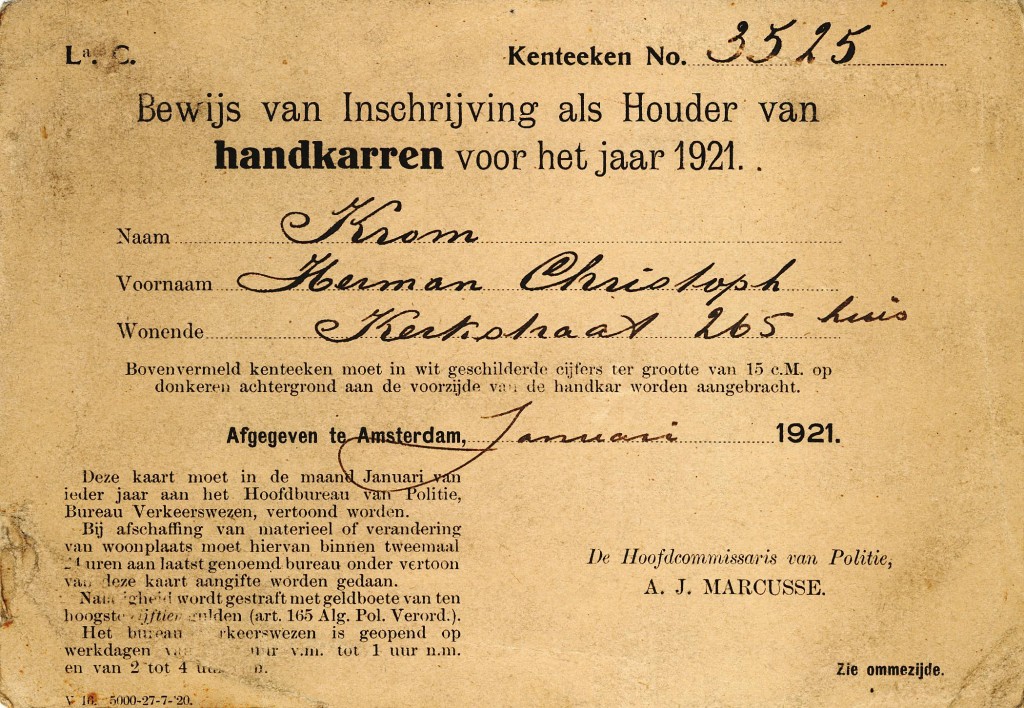 La. C.
Kenteeken No. 3525
Bewijs van Inschrijving als Houder van
handkarren voor het jaar 1921.
Naam Krom
Voornaam Herman Christoph
Wonende Kerkstraat 265 huis
Bovenvermeld kenteeken moet in wit geschilderde cijfers ter grootte van 15 c.M. op
donkeren achtergrond aan de voorzijde van de handkar worden aangebracht.
Afgegeven te Amsterdam, Januari 1921.
Deze kaart moet in de maand Januari van
ieder jaar aan het Hoofdbureau van Politie,
Bureau Verkeerswezen, vertoond worden.
Bij afschaffing van materieel of verandering
van woonplaats moet hiervan binnen tweemaal
24 uren aan laatst genoemd bureau onder vertoon
van deze kaart aangifte worden gedaan.
Nalatigheid wordt gestraft met geldboete van ten
hoogste vijftien gulden (art. 165 Alg. Pol. Verord.).
Het bureau Verkeerswezen is geopend op
werkdagen van uur v.m. tot 1 uur n.m.
en van 2 tot 4 uur n.m.
De Hoofdcommissaris van Politie,
A. J. MARCUSSE.
Zie ommezijde.
V 16. 5000-27-7-'20.